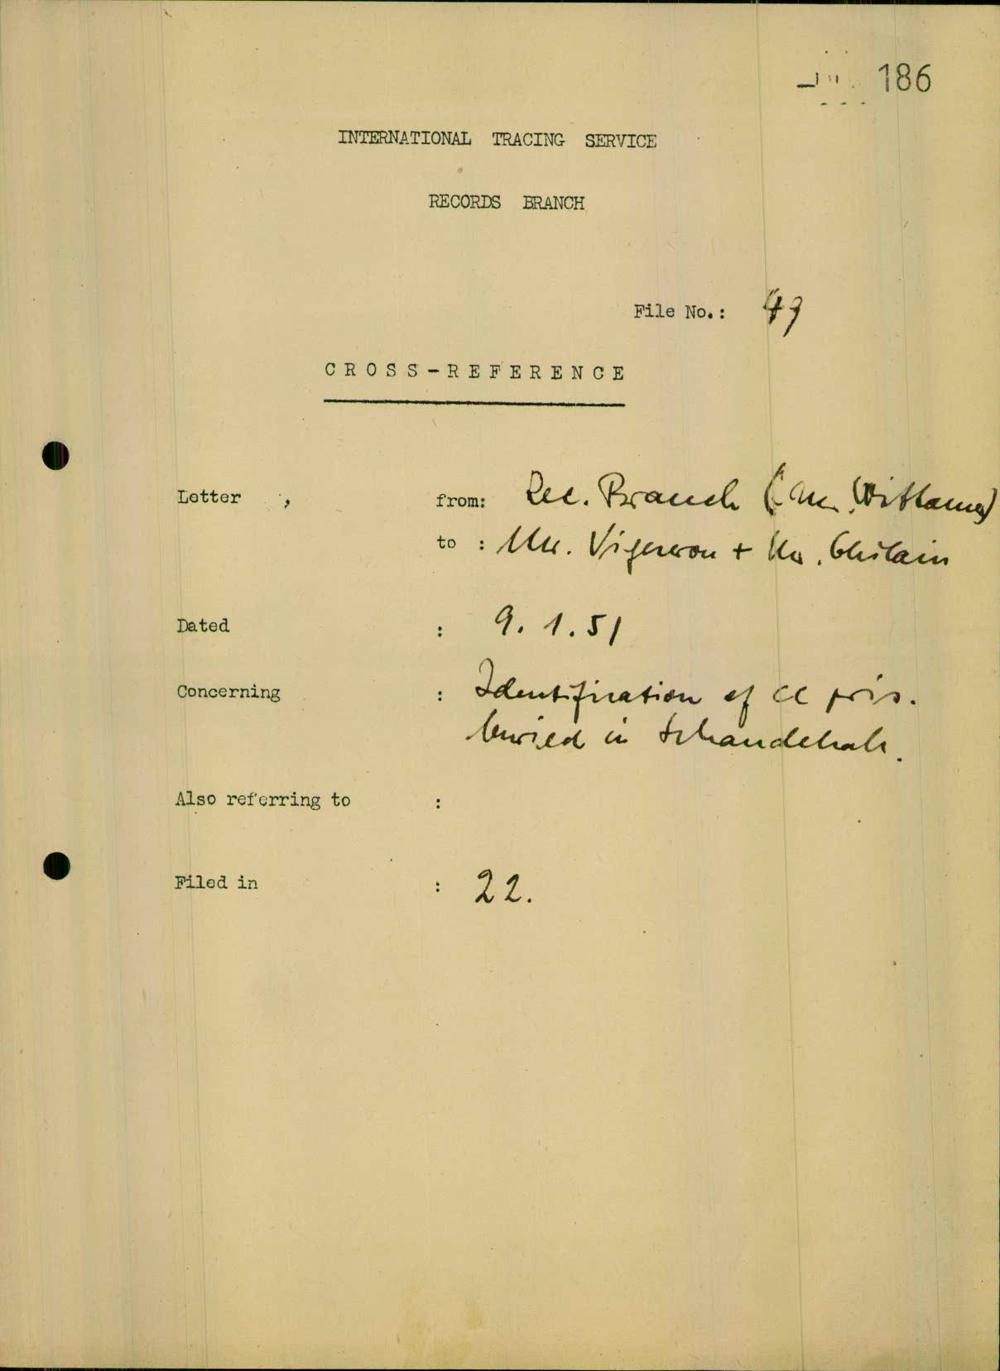 186
INTERNATIONAL TRACING SERVICE
RECORDS BRANCH
File No.: 49
CROSS-REFERENCE
Letter , from: Rec. Branch (Mr. Wittamer)
to : Mr. Vigneron + Mr. Ghilain
Dated : 9.1.51
Concerning : Identification of CC pris.
buried in
Also referring to :
Filed in : 22.